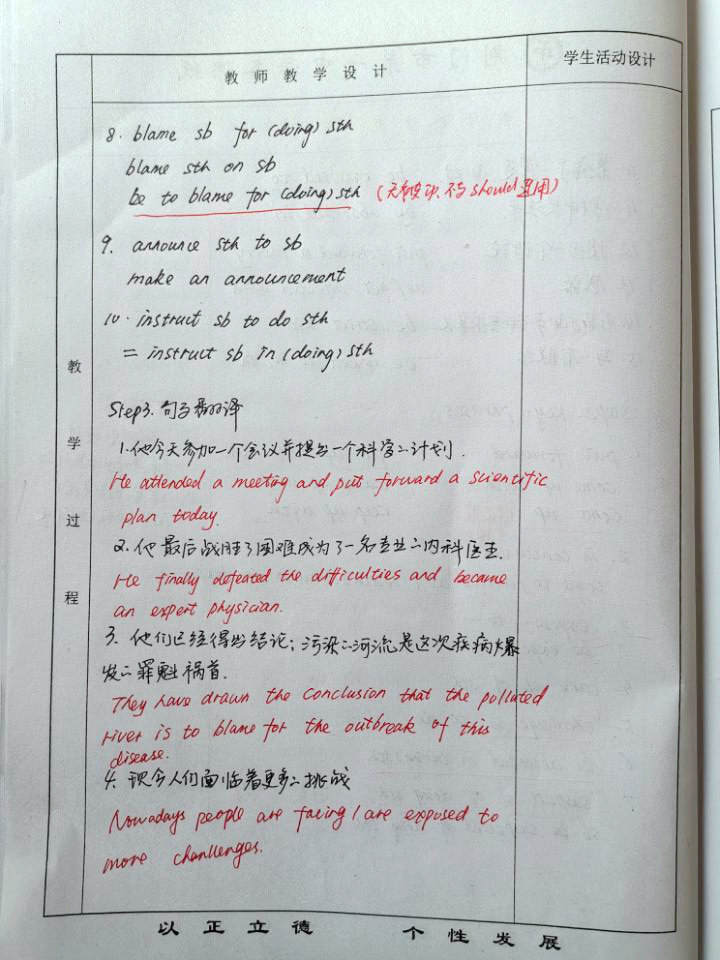 教师教学设计
学生活动设计
8. blame sb for (doing) sth
blame sth on sb
be to blame for (doing) sth (无被动, 不与 should 连用)
9. announce sth to sb
make an announcement
10. instruct sb to do sth
= instruct sb in (doing) sth
Step3. 句子翻译
1. 他今天参加一个会议并提出一个科学的计划.
He attended a meeting and put forward a scientific
plan today.
2. 他最后战胜了困难成为了一名专业的内科医生.
He finally defeated the difficulties and became
an expert physician.
3. 他们已经得出结论; 污染的河流是这次疾病爆
发的罪魁祸首.
They have drawn the conclusion that the polluted
river is to blame for the outbreak of this
disease.
4. 现今人们面临着更多的挑战
Nowadays people are facing / are exposed to
more chanllenges.
教学过程
以正立德 个性发展